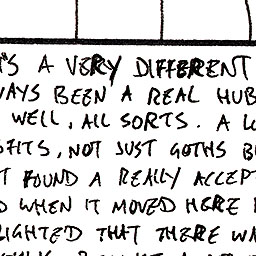 'S A VERY DIFFERENT
WAYS BEEN A REAL HUB
WELL, ALL SORTS. A L
FITS, NOT JUST GOTHS B
T FOUND A REALLY ACCEPT
D WHEN IT MOVED HERE
LIGHTED THAT THERE WA